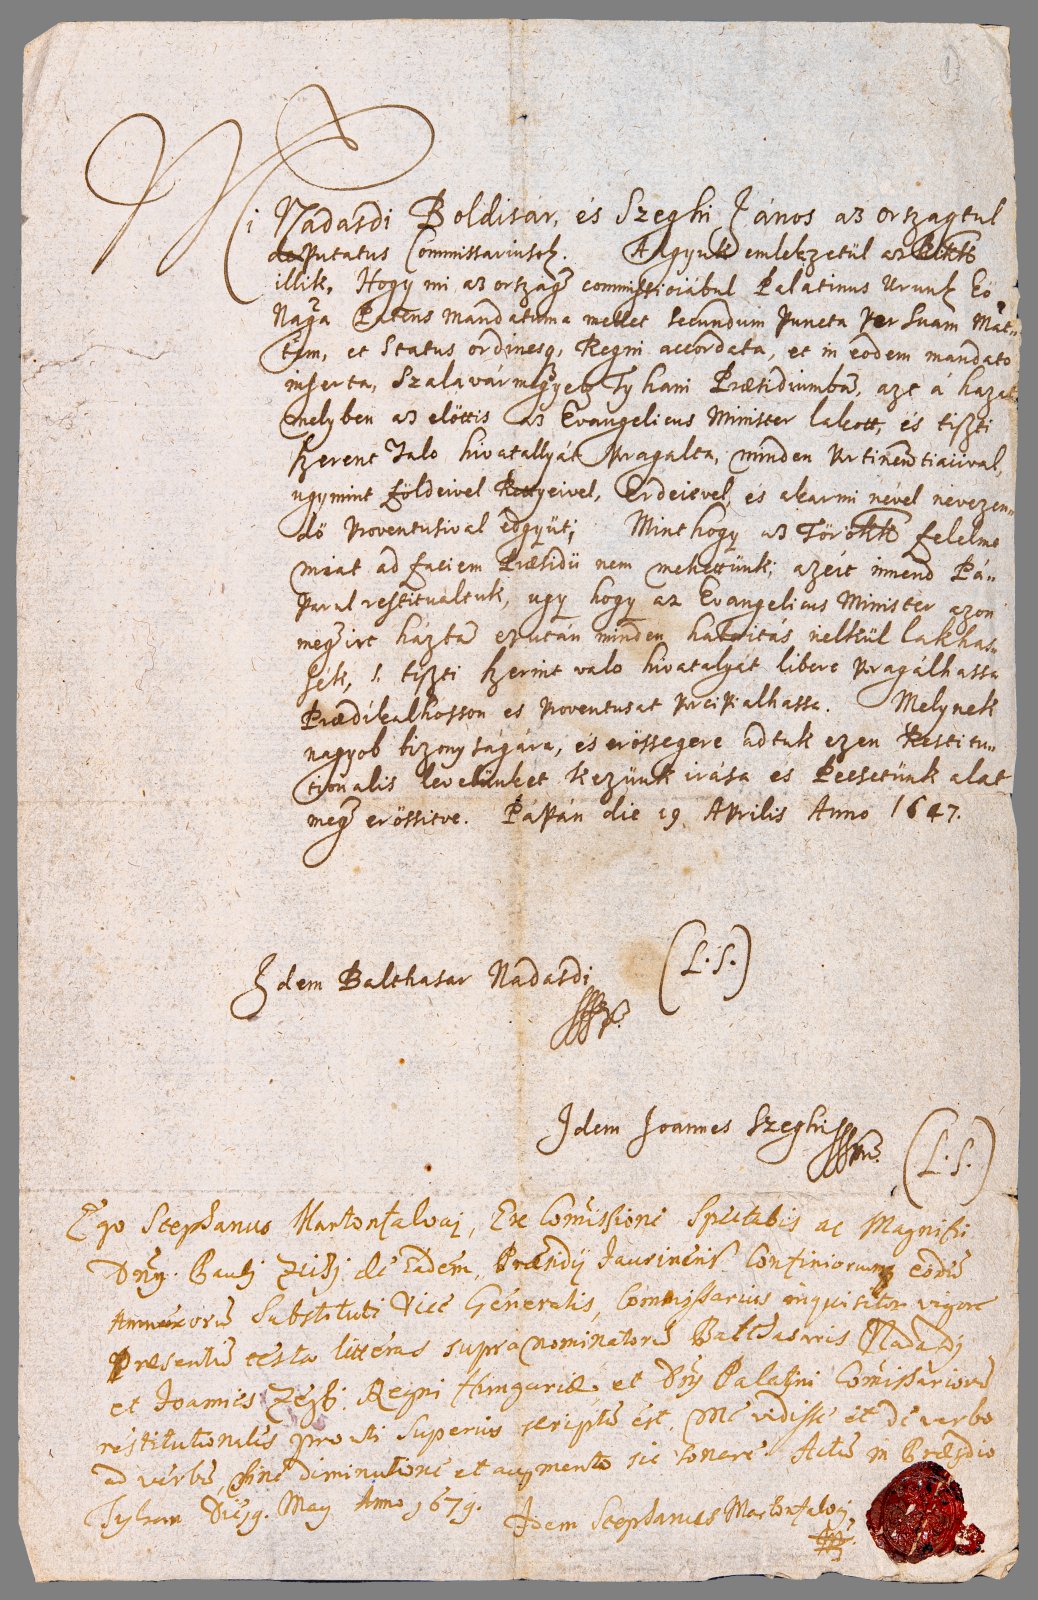 1
Mi Nadasdi Boldisár, és Szeghi János az orszagtul
deputatus Commissariusok. Adgyuk emlekezetül az kikk
illik, Hogy mi az országh commissioiábul Palatinus Urunk Eö
Nagga Patens mandatuma mellet secundum Puncta per Suam Mat-
tem, et Status ordinesq, Regni accordata, et in eodem mandato
inserta, Szalavármegyeb Tyhani Præsidiumba, azt á hazat
melyben az elöttis az Evangelicus Minister lakott, és tiszti
szerent valo hivatallyát pragalta, minden prtinentiaiival,
ugymint földeivel Rettyeivel, Erdeievel, és akarmi nével nevezen-
dö proventusival edgyüt; Mint hogy az Törökk felelme
miat ad faciem Præsidii nem mehettünk; azért innend Pá-
parul restitualtuk, ugy hogy az Evangelicus Minister azon
megh irt házta ezután minden haboritás nelkül lakhas-
sék, s. tiszti szerint valo hivatalyát libere pragálhassa
Prædikalhosson es proventusat prcipialhassa. Melynek
nagyob bizonyságára, és erössegere adtuk ezen Restitu-
tionalis levelünket kezünk irása es Pecsetünk alat
megh erössitve. Pápán die 19 Aprilis Anno 1647.
Idem Balthasar Nadasdi (L.S.)
Idem Joannes Szeghi (L.S.)
Ego Stephanus Martonfalvaj, Ex Comissione Spectabis ac Magnifici
Dnj. Pauli Zichj de eadem, Præsidij Jaurinensis Confiniorumq eodem
Annexorum Substituti Vice Generalis, Commissarius inquisitor vigore
præsentium testor litteras supra nominatorum Balthasaris Nadasdj
et Joannis Zeghi Regni Hungariæ et Dnj Palatini Comissariorum
restitutionales prouti superius scriptum est, Me vidisse et de verbo
ad verbum, sine diminutione et augmento sic sonare. Actum in Præsidio
Tyhan Die 19. May Anno 1679.
Idem Stephanus Martonfalvaj,